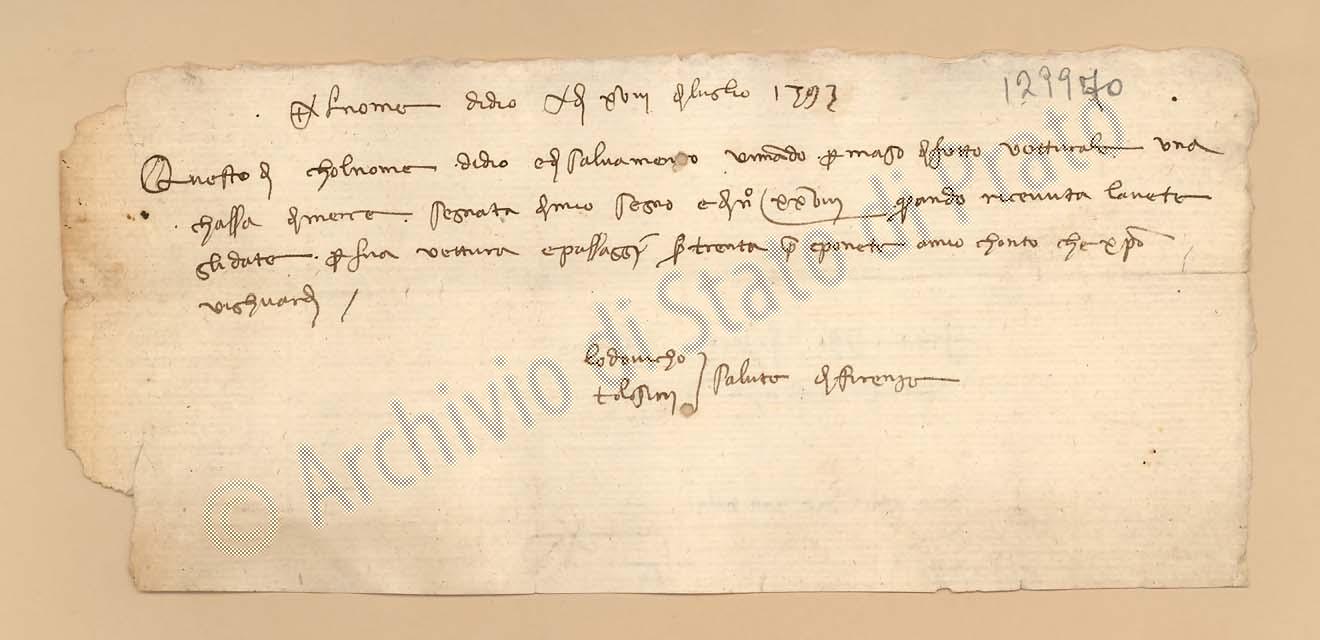 129970
✝ Al nome di dio Adì xviii di luglio 1393
Questo dì chol nome di dio e di salvamento vi mando p maso di sotto vetturale una
chassa di merce segnata di mio segno e di nº xxviii quando ricevuta lavete
gli date p sua vettura e passaggi s trenta e ponete a mio chonto che xpo
vi ghuardi /
Lodovicho
tolosini
salute di firenze
© Archivio di Stato di Prato